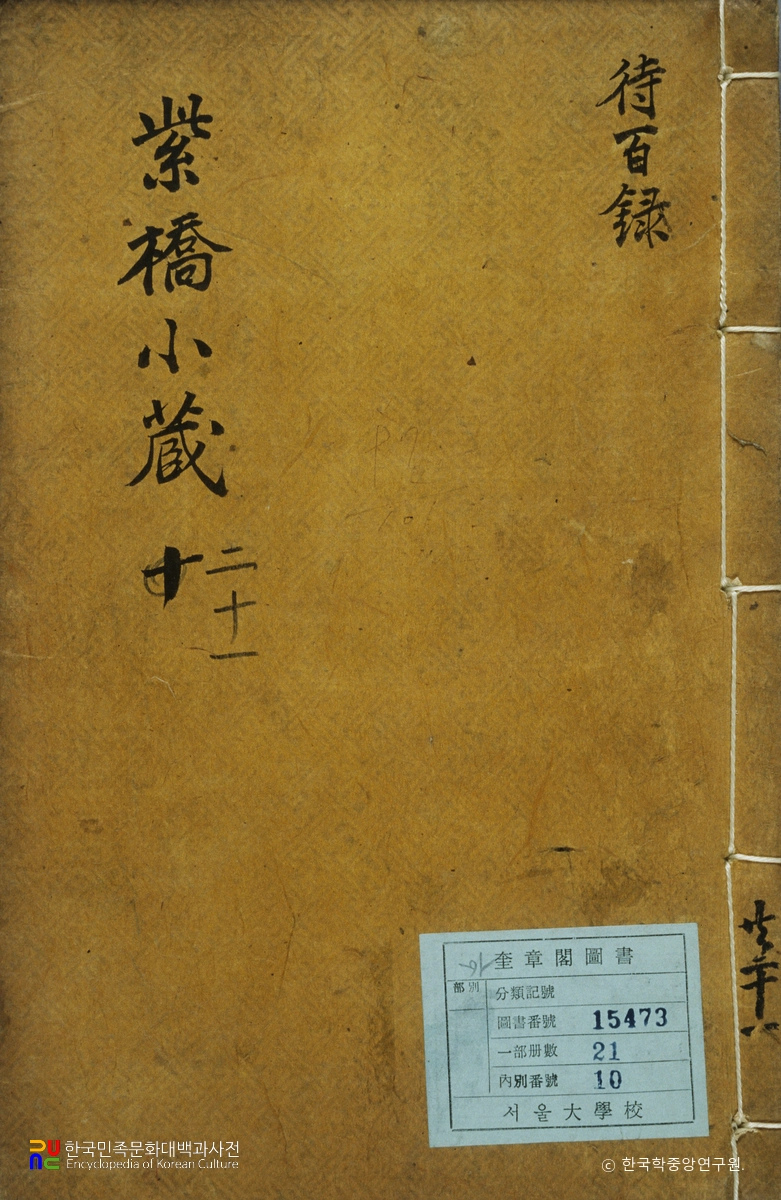 待百録
紫橋小蔵
十
二十一
共二十八
奎章閣圖書
部別
分類記號
圖書番號 15473
一部册數 21
內別番號 10
서울大學校
한국민족문화대백과사전
Encyclopedia of Korean Culture
ⓒ 한국학중앙연구원.